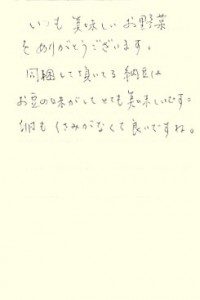 いつも美味しいお野菜
をありがとうございます。
同梱して頂いてる納豆は
お豆の味がしてとても美味しいです。
卵もくさみがなくて良いですね。